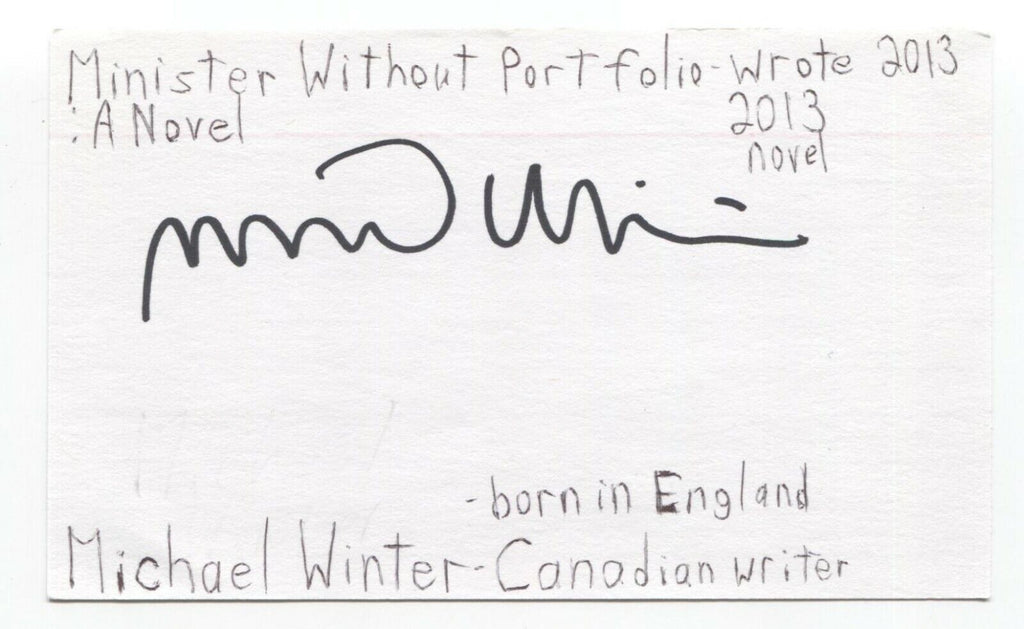 Minister Without Portfolio - wrote 2013
: A Novel
2013
novel
- born in England
Michael Winter - Canadian writer